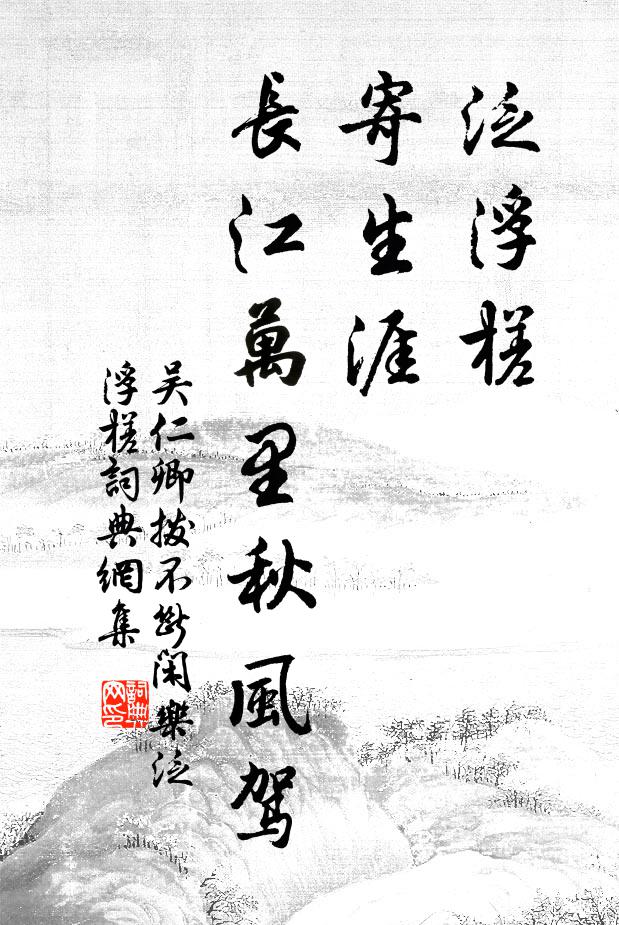 泛浮槎
寄生涯
長江萬里秋風駕
吴仁卿拨不断闲樂泛
浮槎詞典網集
詞典网印